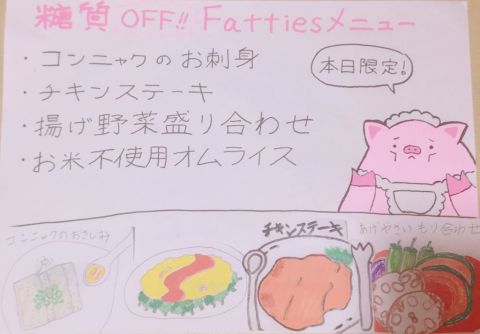 糖質OFF!! Fattiesメニュー
・コンニャクのお刺身
・チキンステーキ
・揚げ野菜盛り合わせ
・お米不使用オムライス
本日限定!
コンニャクのおさしみ
チキンステーキ
あげやさいもり合わせ